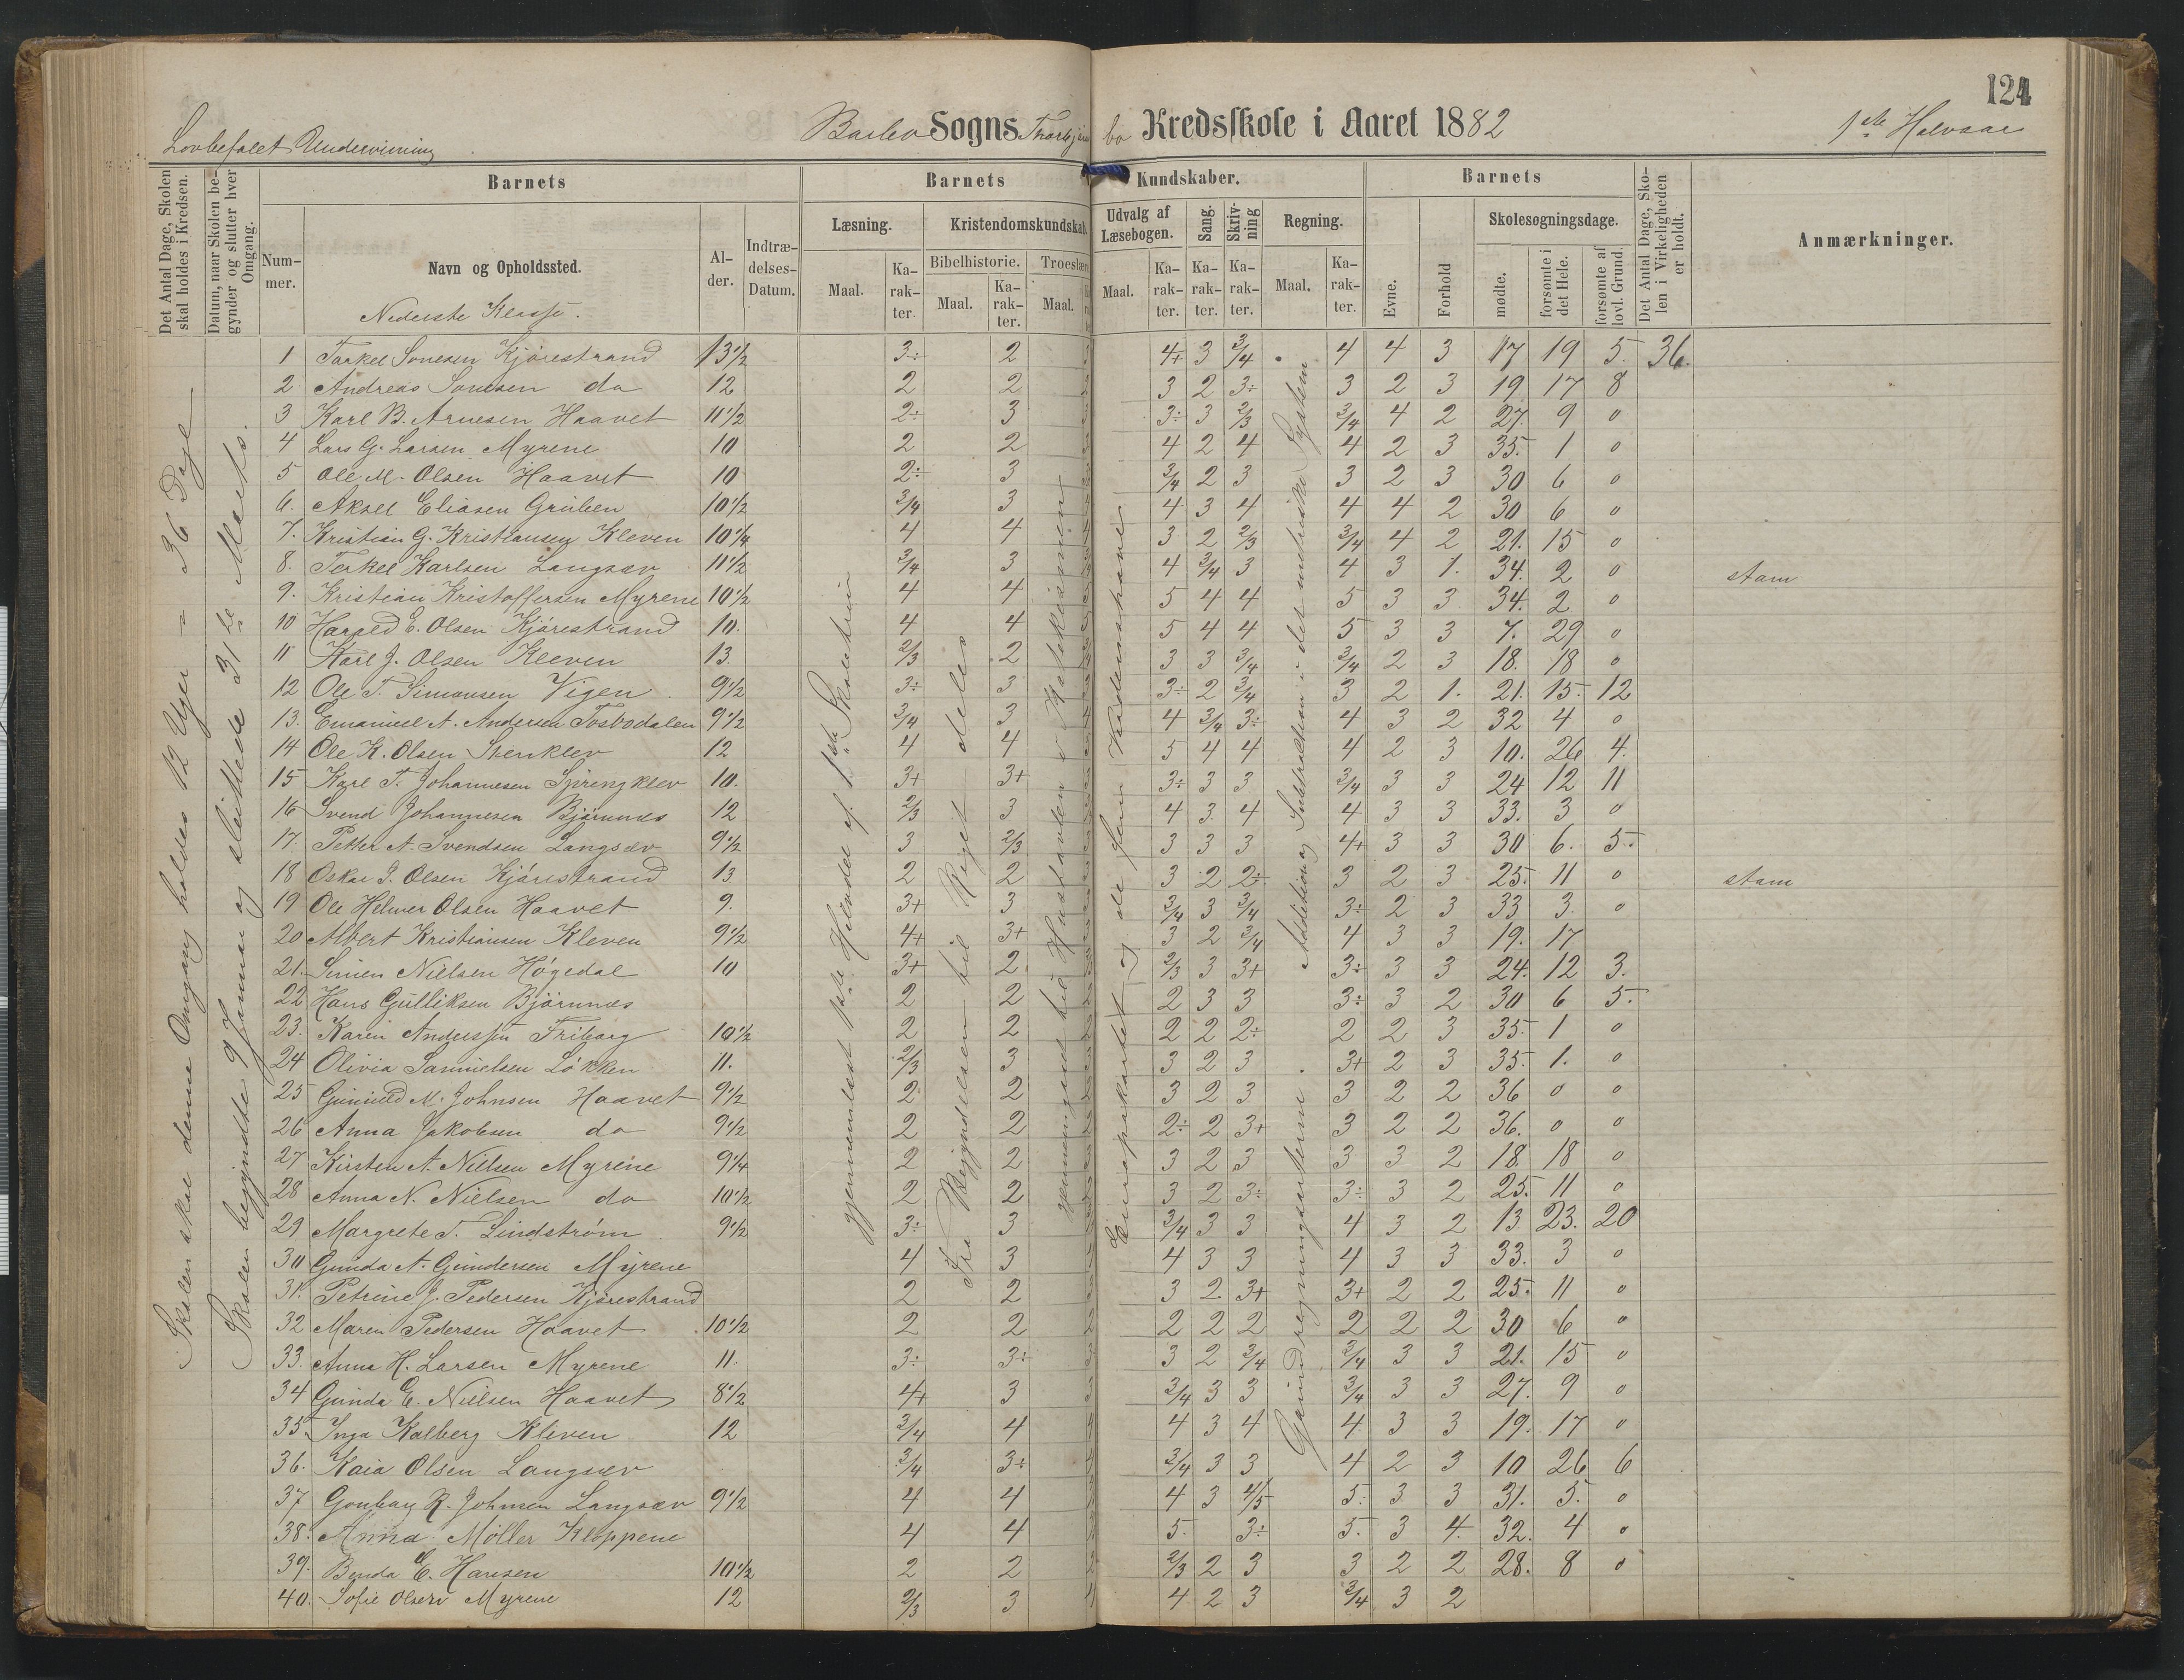 124
Lovbefalet Undervisning
Barbo Sogns Thorbjørnsbo Kredsskole i Aaret 1882
1ste Halvaar
Det Antal Dage, Skolen skal holdes i Kredsen.
Datum, naar Skolen begynder og slutter hver Omgang.
Barnets
Num-mer.
Navn og Opholdssted.
Al-der.
Indtræ-delses-Datum.
Barnets Kundskaber.
Læsning.
Maal.
Ka-rak-ter.
Kristendomskundskab.
Bibelhistorie.
Maal.
Ka-rak-ter.
Troeslære
Maal.
Udvalg af Læsebogen.
Maal.
Ka-rak-ter.
Sang.
Ka-rak-ter.
Skriv-ning
Ka-rak-ter.
Regning.
Maal.
Ka-rak-ter.
Barnets
Evne.
Forhold
Skolesøgningsdage.
mødte.
forsømte i det Hele.
forsømte af lovl. Grund.
Det Antal Dage, Sko-len i Virkeligheden er holdt.
Anmærkninger.
Nederste Klasse.
Skolen skal denne Omgang holdes 12 Uger = 36 Dage
Skolen begyndte 9 Januar og sluttede 31te Marts.
gjennemlæst Halvdel af 1ste Skoletrin
Fra Begyndelsen til Riget deles
gjennemgaaet til Hustavlen i Katekismen
Europakartet og de fem Verdenshave
Grundregningsarterne. Addition og Subtraktion i det metriske System
1 Torkel Sonesen Kjørestrand 13 1/2 3÷ 2 4+ 3 3/4 4 4 3 17 19 5. 36.
2 Andreas Sonesen do 12 2 2 3 2 3÷ 3 2 3 19 17 8
3 Karl B. Arnesen Haavet 11 1/2 2÷ 3 3÷ 3 2/3 3/4 4 2 27. 9 0
4 Lars G. Larsen Myrene 10 2 2 4 2 4 4 2 3 35. 1 0
5 Ole M. Olsen Haavet 10 2÷ 3 3/4 2 3 3 2 3 30 6 0
6. Aksel Eliasen Gruben 10 1/2 3/4 3 4 3 4 4 4 2 30 6 0
7. Kristian G. Kristiansen Kleven 10 1/4 4 4 3 2 2/3 3/4 4 2 21. 15 0
8. Terkel Karlsen Langsæv 11 1/2 3/4 3 4 3/4 3 4 3 1. 34. 2 0 stam
9. Kristian Kristoffersen Myrene 10 1/2 4 4 5 4 4 5 3 3 34. 2 0
10 Harald E. Olsen Kjørestrand 10. 4 4 5 4 4 5 3 3 7. 29 0
11 Karl J. Olsen Kleven 13. 2/3 2 3 3 3/4 3/4 2 3 18. 18 0
12 Ole T. Simonsen Vigen 9 1/2 3÷ 3 3÷ 2 3/4 3 2 1. 21. 15. 12
13. Emanuel A. Andersen Tosbodalen 9 1/2 3/4 3 4 3/4 3÷ 4 3 2 32 4 0
14 Ole K. Olsen Stenklev 12 4 4 5 4 4 4 2 3 10. 26 4.
15 Karl T. Johannesen Springklev 10. 3+ 3+ 3÷ 3 3 3/4 3 3 24 12 11
16 Svend Johannesen Bjørnnes 12 2/3 3 4 3 4 4 3 3 33. 3 0
17. Petter A. Svendsen Langsæv 9 1/2 3 2/3 3 3 3 4+ 3 3 30 6. 5.
18 Oskar J. Olsen Kjørestrand 13 2 2 3 2 2÷ 3 2 3 25. 11 0 stam
19 Ole Helmer Olsen Haavet 9. 3+ 3 3/4 3 3/4 3÷ 2 3 33 3. 0
20 Albert Kristiansen Kleven 9 1/2 4+ 3+ 3 2 3/4 4 3 3 19. 17
21. Simen Nielsen Høgedal 10 3+ 2 2/3 3 3+ 3÷ 3 3 24. 12 3.
22 Hans Gulliksen Bjørnnes 2 2 2 3 3 3÷ 3 2 30 6 5.
23. Karen Anderssen Friborg 10 1/2 2 2 2 2 2÷ 2 2 3 35. 1 0
24 Olivia Samuelsen Løkken 11. 2/3 3 3 2 3 3+ 2 3 35. 1. 0
25 Gunuld M. Johnsen Haavet 9 1/2 2 2 3 2 3 3 2 2 36 0 0
26 Anna Jakobsen do 9 1/2 2 2 2÷ 2 3+ 3 2 2 36. 0 0
27 Kirsten A. Nielsen Myrene 9 1/4 2 2 3 2 3 3 3 2 18. 18 0
28 Anna N. Nielsen do 10 1/2 2 2 3 2 3÷ 3÷ 3 2 25. 11 0
29 Margrete T. Lindstrøm 9 1/2 3÷ 3 3/4 3 3 4 3 2 13 23. 20
30 Gunda A. Gundersen Myrene 4 3 4 3 3 4 3 3 33. 3 0
31. Petrine J. Pedersen Kjørestrand 2 2 3 2 3+ 3+ 2 2 25. 11 0
32 Maren Pedersen Haavet 10 1/2 2 2 2 2 2 2 2 2 30 6 0
33. Anna H. Larsen Myrene 11. 3÷ 3÷ 3 2 3/4 3/4 3 3 21. 15 0
34 Gunda E. Nielsen Haavet 8 1/2 4+ 3 3/4 3 3 3/4 3 3 27. 9 0
35 Inga Kalberg Kleven 12 3/4 4 4 3 4 4 3 3 19. 17 0
36. Kaia Olsen Langsæv 3/4 3÷ 3/4 3 3 4 2 3 10 26 6
37 Gonbay R. Johnsen Langsæv 9 1/2 4 4 4 3 4/5 5÷ 3 3 31. 5. 0
38. Anna Møller Kloppene 4 4 5. 3÷ 5. 3 4. 32. 4 0
39. Benda E. Hansen 10 1/2 2 2 2/3 2 3 3 2 2 28. 8 0
40. Sofie Olsen Myrene 12 2/3 3 4 2 3 3/4 3 2